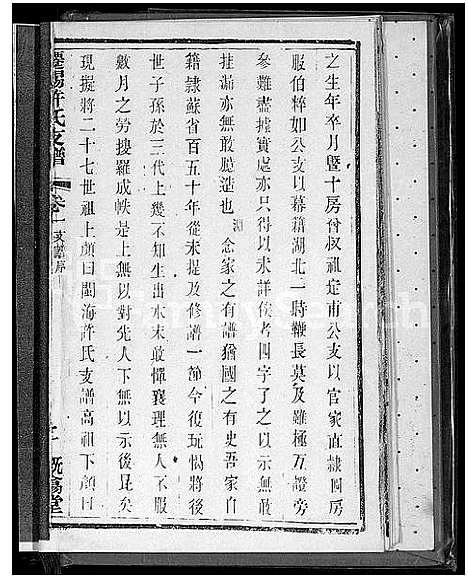 之生年卒月暨十房脅叔祖定甫公支以官家直隸四房
服伯粹如公支以幕籍湖北一時鞭長莫及雖極互證旁
參難盡據實處亦只得以未詳俟考四字了之以示無敢
挂漏亦無敢臆造也 淵 念家之有譜猶國之有史吾家自
籍隸蘇省百五十年從未提及修譜一節今復玩愒將後
世子孫於三代上幾不知生出水木敢憚襄理無人不服
數月之勞搜羅成帙是上無以對先人下無以示後昆矣
現擬將二十七世祖上顏曰閩海許氏支譜高祖下顏曰
遷錫許氏支譜 卷一 支譜序 既翕堂
FamilySearch